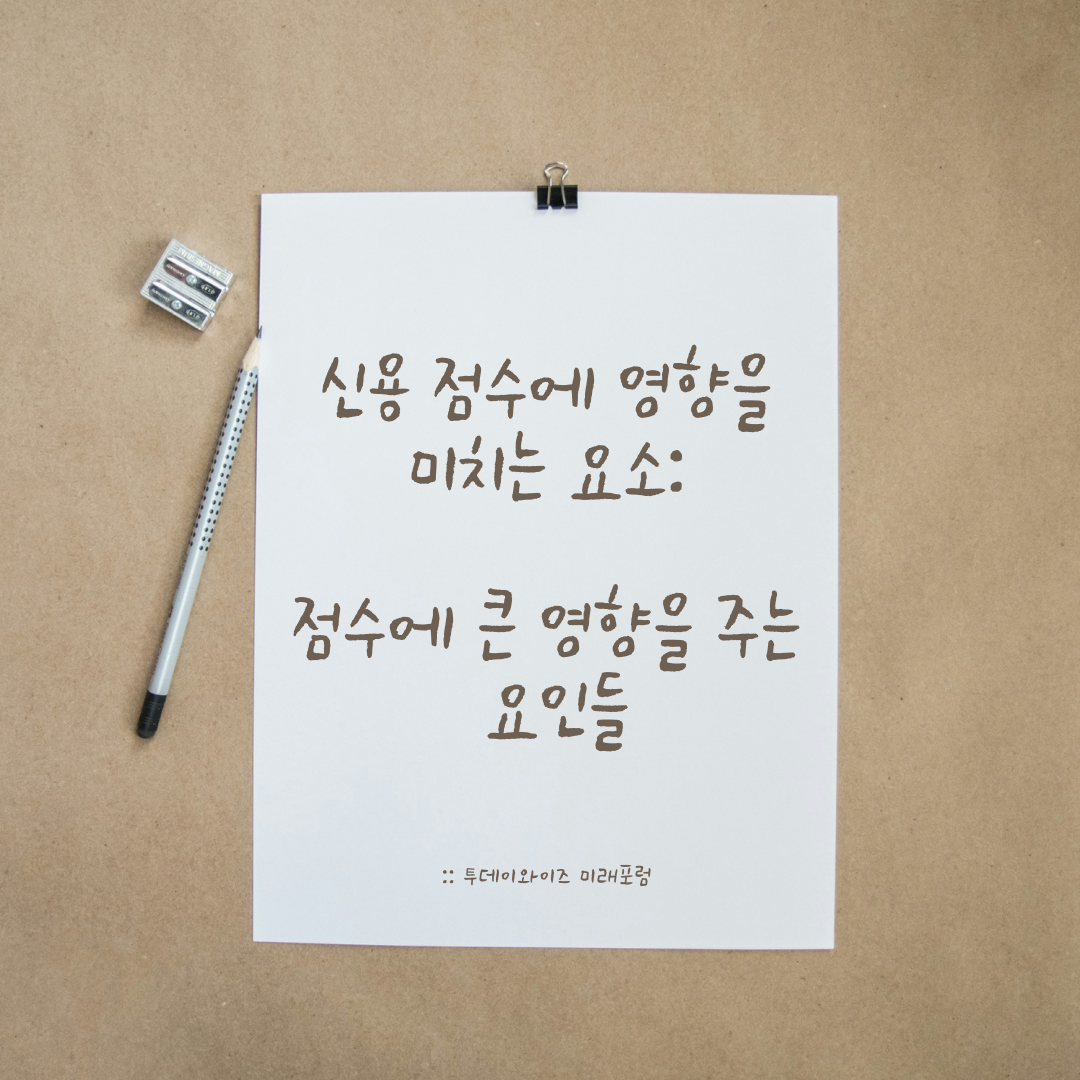 신용 점수에 영향을
미치는 요소:
점수에 큰 영향을 주는
요인들
:: 투데이와이즈 미래포럼